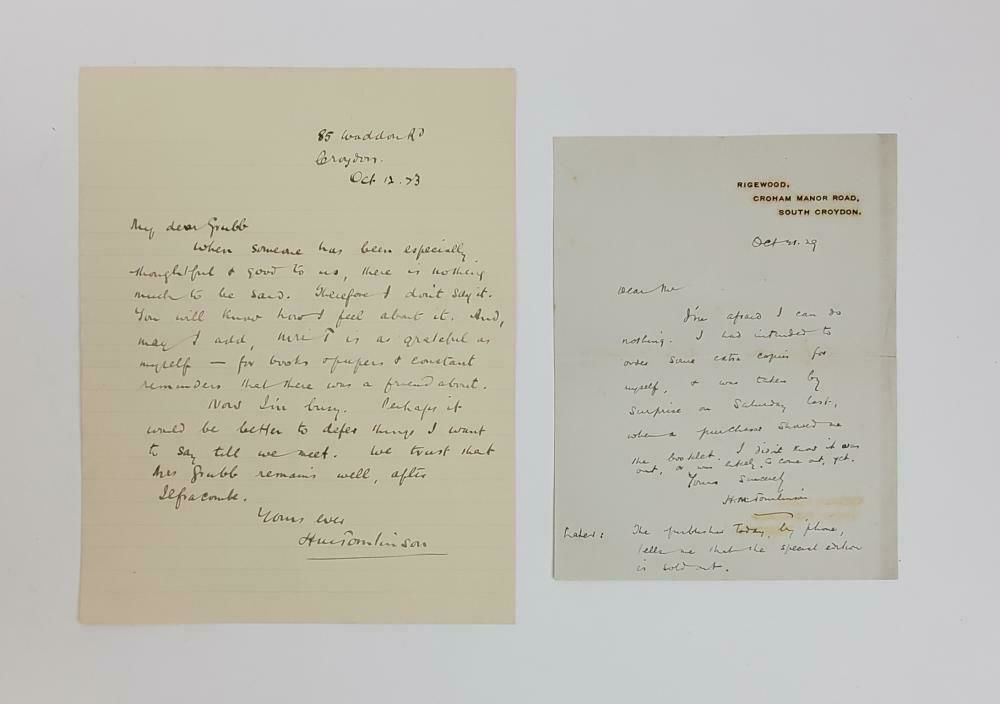 85 Waddon Rd
Croydon.
Oct 12. 23
My dear Grubb
When someone has been especially
thoughtful & good to us, there is nothing
much to be said. Therefore I don't say it.
You will know how I feel about it. And,
may I add, Mrs T is as grateful as
myself — for books & papers & constant
reminders that there was a friend about.
Now I'm busy. Perhaps it
would be better to defer things I want
to say till we meet. We trust that
Mrs Grubb remains well, after
Ilfracombe.
Yours ever
H M Tomlinson
RIGEWOOD,
CROHAM MANOR ROAD,
SOUTH CROYDON.
Oct 21. 29
Dear
I'm afraid I can do
nothing. I had intended to
order some extra copies for
myself, & was taken by
surprise on Saturday last,
when a purchaser showed me
the booklet. I didn't know it was
out, or was likely to come out, yet.
Yours Sincerely
H M Tomlinson
Later: The publisher today, by 'phone,
tells me that the special edition
is sold out.